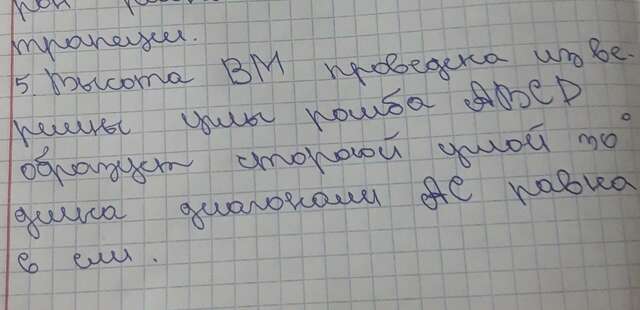 трапеции.
5. Высота ВМ проведена из ве-
ршины углы ромба ABCD
образует стороой углой 30°
длина диагонали АС равна
6 см.